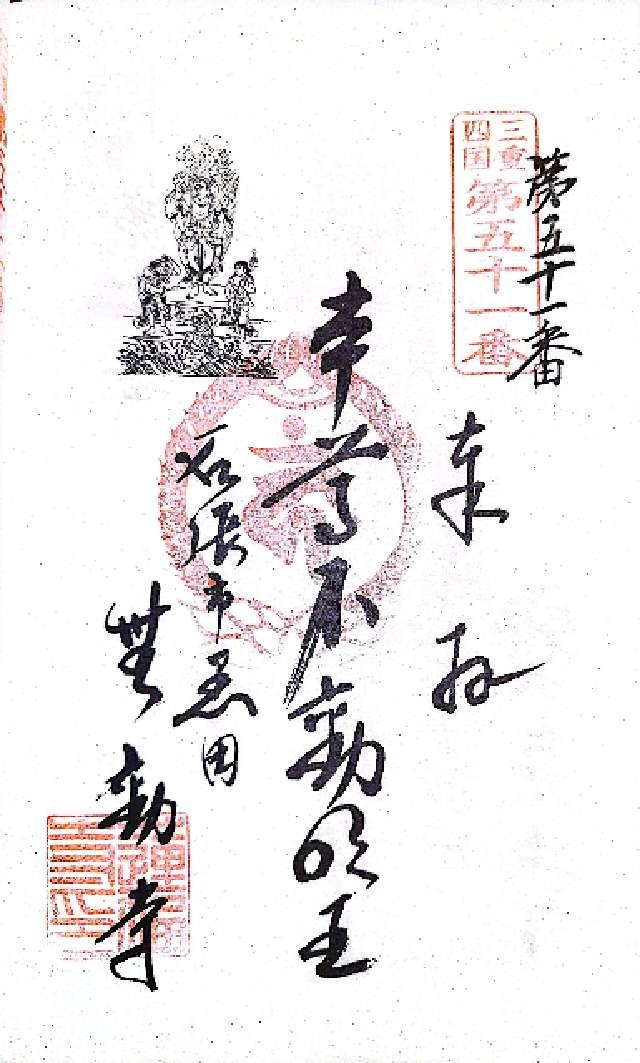 三重
四国
第五十一番
第五十一番
奉拝
本尊不動明王
名張市黒田
無動寺